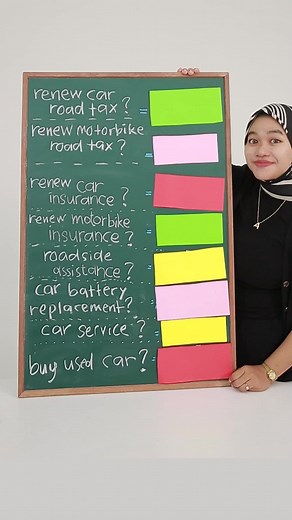 renew car
road tax? =
renew motorbike
road tax? =
renew car
insurance? =
renew motorbike
insurance? =
roadside
assistance? =
car battery
replacement? =
car service? =
buy used car? =